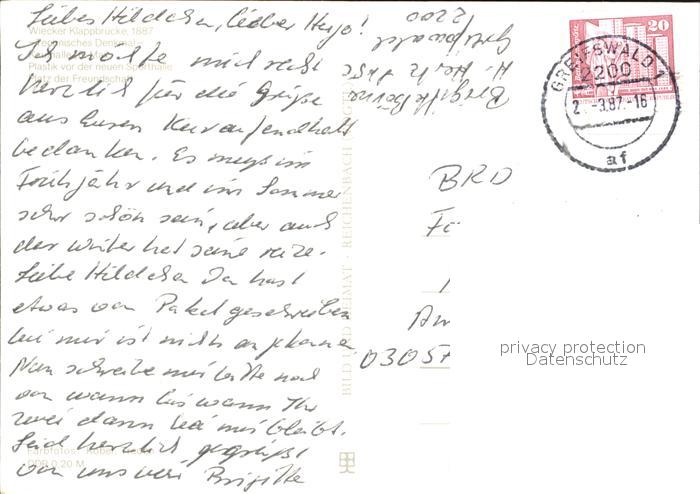 Liebes Hildchen, lieber Hugo!
Ich möchte mich recht
herzlich für die Grüße
aus Eurem Kuraufenthalt
bedanken. Es muß im
Frühjahr und im Sommer
sehr schön sein, aber auch
der Winter hat seine Reize.
Liebe Hildchen Du hast
etwas von Paket geschrieben
bei mir ist nichts angekommen
Nun schreibe mir bitte noch
von wann bis wann Ihr
zwei dann bei mir bleibt.
Seid herzlich gegrüßt
von uns Brigitte
Wiecker Klappbrücke, 1887
Technisches Denkmal
Plastik vor der neuen Sporthalle
Platz der Freundschaft
Farbfotos:
DDR 0,20 M
BILD UND HEIMAT · REICHENBACH
Brigitte
Greifswald
2200
20
GREIFSWALD 1
2200
-3.87-16
af
BRD
0305
privacy protection
Datenschutz